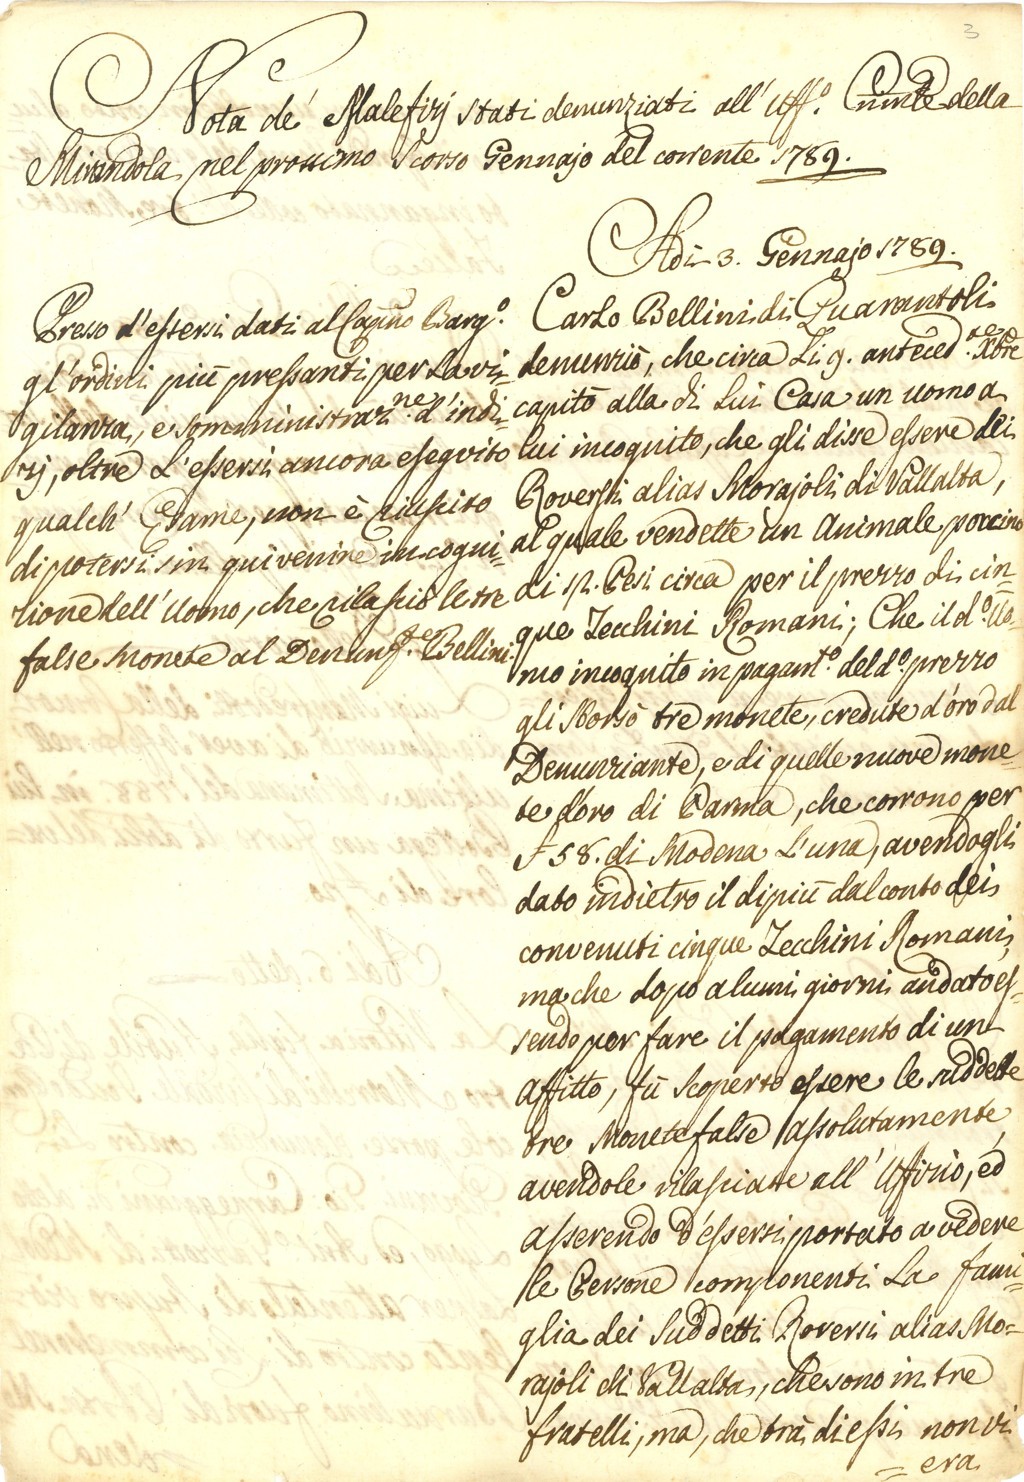 3
Nota de' Malefizj stati denunziati all' Uff.o Crim.le della
Mirandola nel prossimo scorso Gennajo del corrente 1789.
Adi 3. Gennajo 1789.
Preso d'essersi dati al Cap.no Barg.o
gl'ordini più pressanti per la vi-
gilanza, e somministraz.ne d'indi-
zj, oltre l'essersi ancora eseguito
qualch' Esame, non è riuscito
di potersi sin qui venire in cogni-
zione dell' Uomo, che rilasciò le tre
false monete al Denunz.te Bellini.
Carlo Bellini di Quarantoli
denunziò, che circa li 9. anteced.te Xbre
capitò alla di lui Casa un uomo a
lui incognito, che gli disse essere dei
Roversi alias Morajoli di Vallalta,
al quale vendette un Animale porcino
di Pesi circa per il prezzo di cin-
que Zecchini Romani; Che il d.o Uo-
mo incognito in pagam.to del d.o prezzo
gli sborsò tre monete, credute d'oro dal
Denunziante, e di quelle nuove mone-
te d'oro di Parma, che corrono per
£ 58. di Modena l'una, avendogli
dato indietro il di più dal conto dei
convenuti cinque Zecchini Romani,
ma che dopo alcuni giorni andato es-
sendo per fare il pagamento di un
affitto, fù scoperto essere le suddette
tre monete false assolutamente,
avendole rilasciate all' Uffizio, ed
asserendo d'essersi portato a vedere
le Persone componenti la fami-
glia dei suddetti Roversi alias Mo-
rajoli di Vallalta, che sono in tre
fratelli, ma, che trà di essi non vi
era